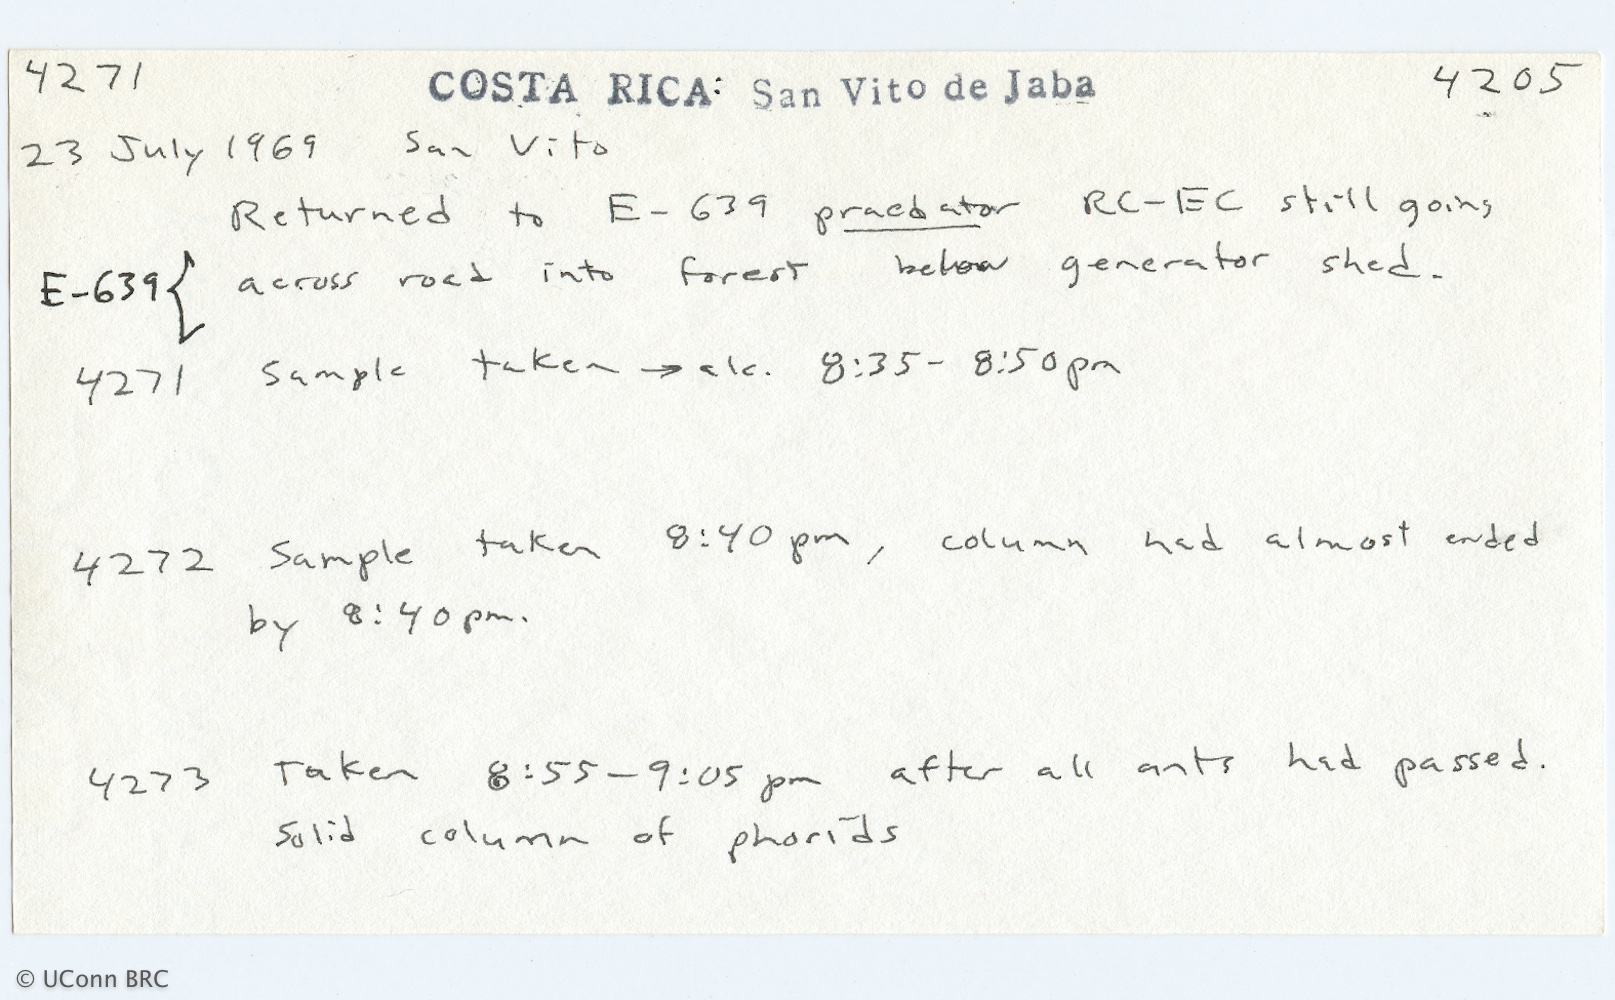 4271 COSTA RICA: San Vito de Jaba 4205
23 July 1969 San Vito
Returned to E-639 praedator RC-EC still going
E-639{ across road into forest below generator shed.
4271 Sample taken → alc. 8:35- 8:50pm
4272 Sample taken 8:40 pm, column had almost ended
by 8:40pm.
4273 Taken 8:55-9:05 pm after all ants had passed.
Solid column of phorids
© UConn BRC